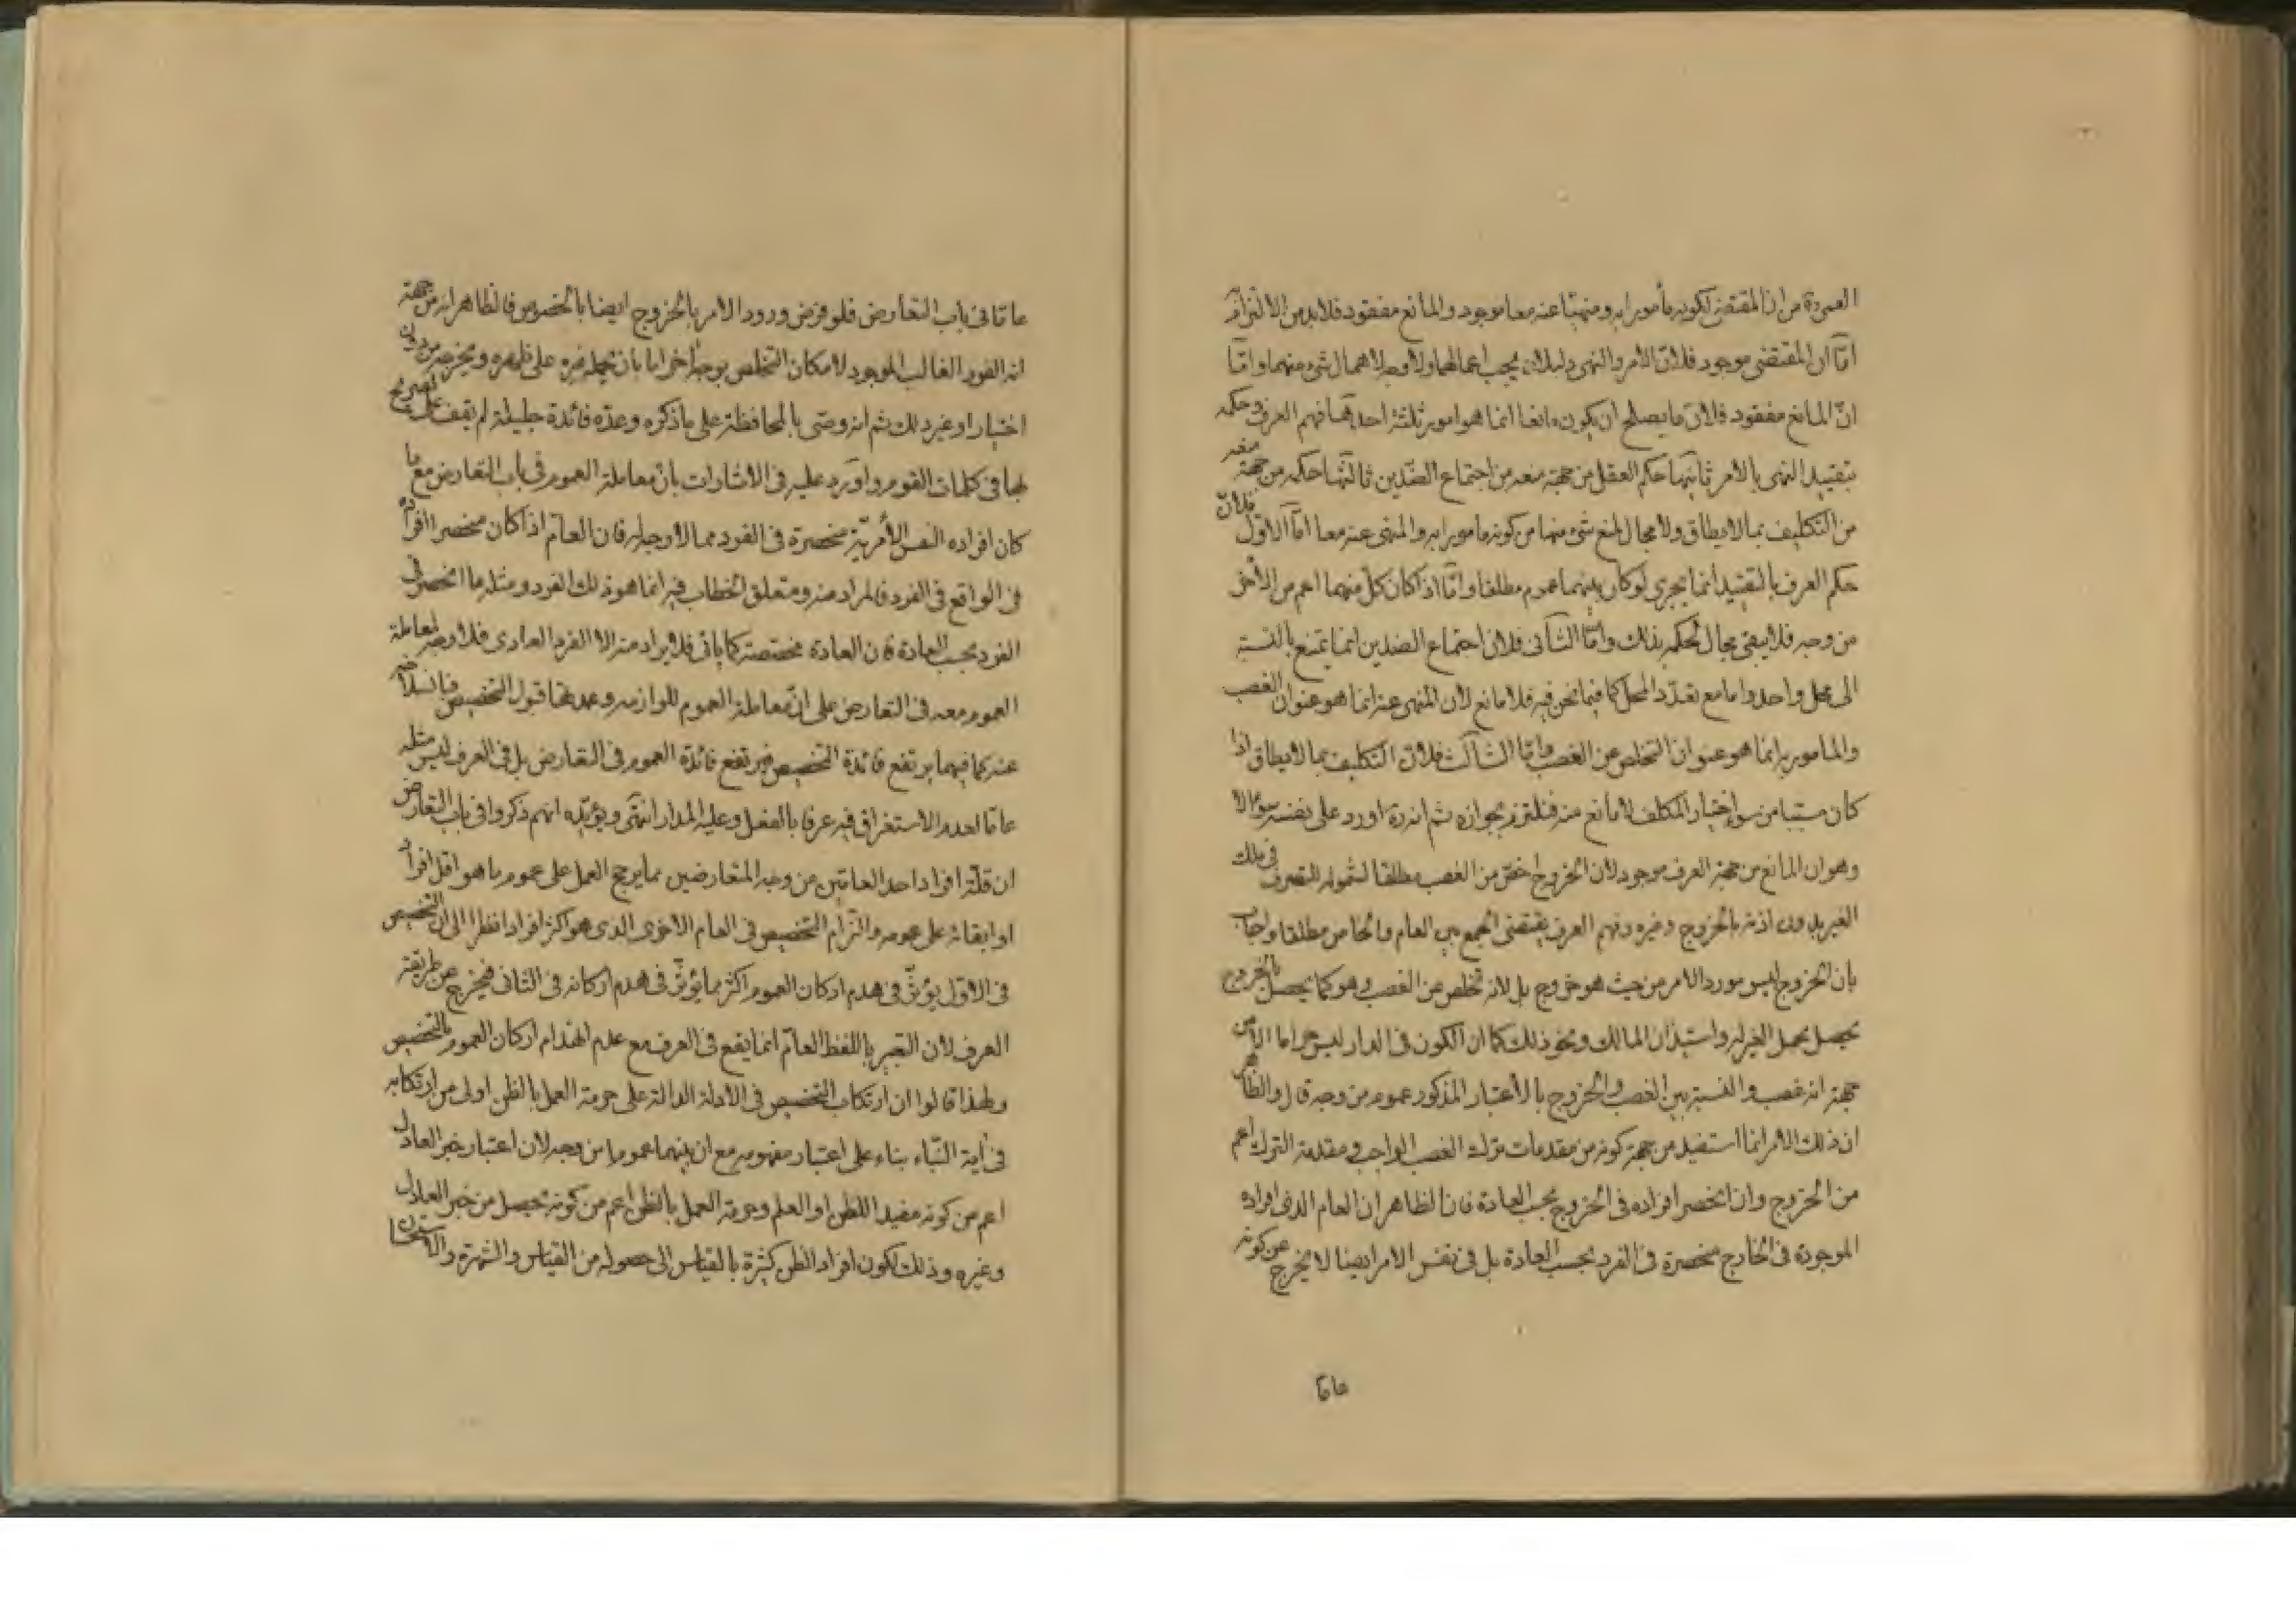 العمدة من ان المقتضى لكونه مأمورا به ومنهيا عنه معا موجود والمانع مفقود فلا بد من الالتزام
اما ان المقتضى موجود فلان الامر والنهى دليلان يجب اعمالهما ولا وجه لاهمال شئ منهما واما
ان المانع مفقود فلان ما يصلح ان يكون مانعا انما هو امور ثلثة احدها فهم العرف وحكمه
بتقييد النهى بالامر ثانيها حكم العقل من جهة منعه من اجتماع الضدين ثالثها حكمه من جهة منعه
من التكليف بما لا يطاق ولا مجال لمنع شئ منها من كونه مامورا به والمنهى عنه معا اما الاول فلان
حكم العرف بالتقييد انما يجرى لو كان بينهما عموم مطلقا واما اذا كان كل منهما اعم من الأخر
من وجه فلا يبقى مجال لحكمه بذلك واما الثانى فلان اجتماع الضدين انما يمتنع بالنسبة
الى محل واحد واما مع تعدد المحل كما فيما نحن فيه فلا مانع لان المنهى عنه انما هو عنوان الغصب
والمامور به انما هو عنوان التخلص عن الغصب واما الثالث فلان التكليف بما لا يطاق اذا
كان مسببا من سوء اختيار المكلف لا مانع منه فنلتزم بجوازه ثم انه ره اورد على نفسه سؤالا
وهو ان المانع من جهة العرف موجود لان الخروج اخص من الغصب مطلقا لشموله للتصرف فى ملك
الغير بدون اذنه بالخروج وغيره وفهم العرف يقتضى الجمع بين العام والخاص مطلقا واجاب
بان الخروج ليس مورد الامر من حيث هو خروج بل لانه تخلص عن الغصب وهو كما يحصل بالخروج
يحصل بحمل الغير له واستيذان المالك ونحو ذلك كما ان الكون فى الدار ليس حراما الا من
جهة انه غصب والنسبة بين الغصب والخروج بالاعتبار المذكور عموم من وجه قال والظاهر
ان ذلك الامر انما استفيد من جهة كونه من مقدمات ترك الغصب الواجب ومقدمة الترك اعم
من الخروج وان انحصر افراده فى الخروج بحسب العادة فان الظاهر ان العام الذى افراده
الموجودة فى الخارج منحصرة فى الفرد بحسب العادة بل فى نفس الامر ايضا لا يخرج عن كونه
عاما
عاما فى باب التعارض فلو فرض ورود الامر بالخروج ايضا بالخصوص فالظاهر انه من جهة
انه الفرد الغالب الموجود لامكان التخلص بوجه اخر اما بان يحمله غيره على ظهره ويخرجه من دون
اختيار او غير ذلك ثم انه وصى بالمحافظة على ما ذكره وعده فائدة جليلة لم يقف على تصريح
بها فى كلمات القوم واورد عليه فى الاشارات بان معاملة العموم فى باب التعارض مع ما
كان افراده النفس الأمرية منحصرة فى الفرد مما لا وجه له فان العام اذا كان منحصرا افراده
فى الواقع فى الفرد فالمراد منه ومتعلق الخطاب فيه انما هو ذلك الفرد ومثله ما انحصر فى
الفرد بحسب العادة فان العادة مخصصة كما ياتى فلا يراد منه الا الفرد العادى فلا وجه لمعاملة
العموم معه فى التعارض على ان معاملة العموم للوازمه وعمدتها قبول التخصيص فبانسلاخه
عنه كما فيهما يرتفع فائدة التخصيص فيرتفع فائدة العموم فى التعارض بل فى العرف ليس مثله
عاما لعدم الاستغراق فيه عرفا بالفعل وعليه المدار انتهى ويؤيده انهم ذكروا فى باب التعارض
ان قلة افراد احد العامين من وجه المتعارضين مما يرجح العمل على عموم ما هو اقل افرادا
او ابقائه على عمومه والتزام التخصيص فى العام الاخر الذى هو اكثر افرادا نظرا الى ان التخصيص
فى الاول يؤثر فى هدم اركان العموم اكثر مما يؤثر فى هدم اركانه فى الثانى فيخرج عن طريقة
العرف لان التعبير باللفظ العام انما يقع فى العرف مع عدم انهدام اركان العموم بالتخصيص
ولهذا قالوا ان ارتكاب التخصيص فى الادلة الدالة على حرمة العمل بالظن اولى من ارتكابه
فى أية النباء بناء على اعتبار مفهومه مع ان بينهما عموما من وجه لان اعتبار خبر العادل
اعم من كونه مفيدا للظن او العلم وحرمة العمل بالظن اعم من كونه يحصل من خبر العادل
وغيره وذلك لكون افراد الظن كثيرة بالقياس الى حصوله من القياس والشهرة والاستحسان